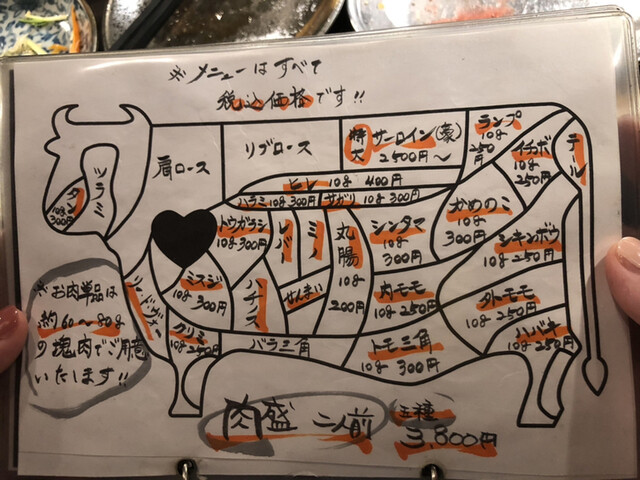 ※メニューはすべて
税込価格です!!
ツラミ
タン
10g
300円
肩ロース
リブロース
特大 サーロイン(豪)
2500円～
ランプ
10g
250円
イチボ
10g
250円
テール
ヒレ 10g 400円
ハラミ 10g 300円
サガリ 10g 300円
トウガラシ
10g 300円
レバー
ミノ
丸腸
10g
200円
シンタマ
10g
300円
かめのミ
10g
300円
シキンボウ
10g 250円
ミスジ
10g
300円
ハチノス
せんまい
肉モモ
10g 250円
外モモ
10g 250円
ハバキ
10g 250円
クリミ
10g 250円
バラ三角
トモ三角
10g 300円
※お肉単品は
約60～80g
の塊肉でご用意
いたします!!
肉盛 二人前 五種
3,800円